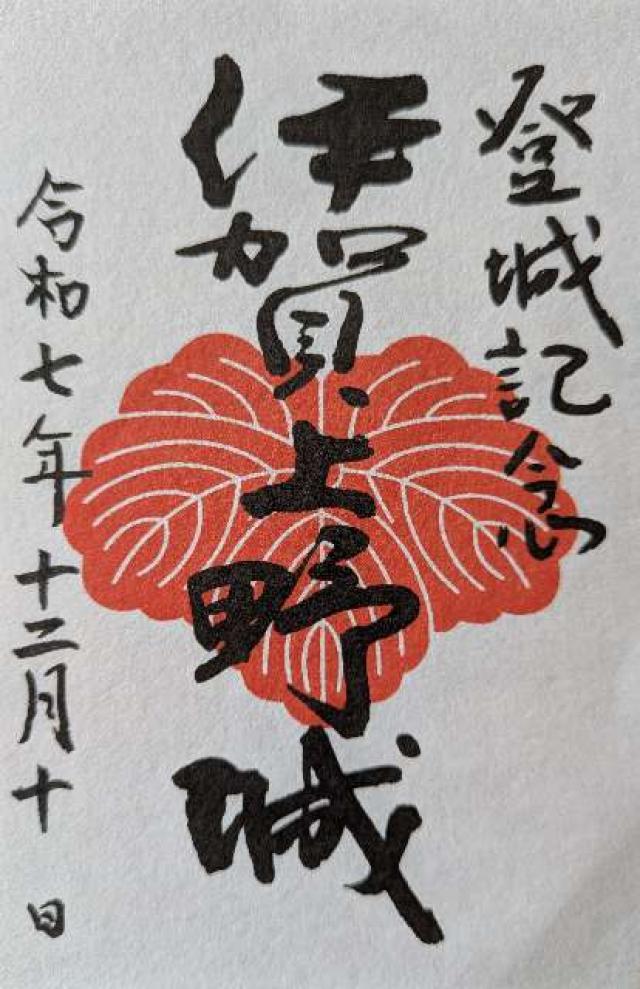 登城記念
伊賀上野城
令和七年十二月十日